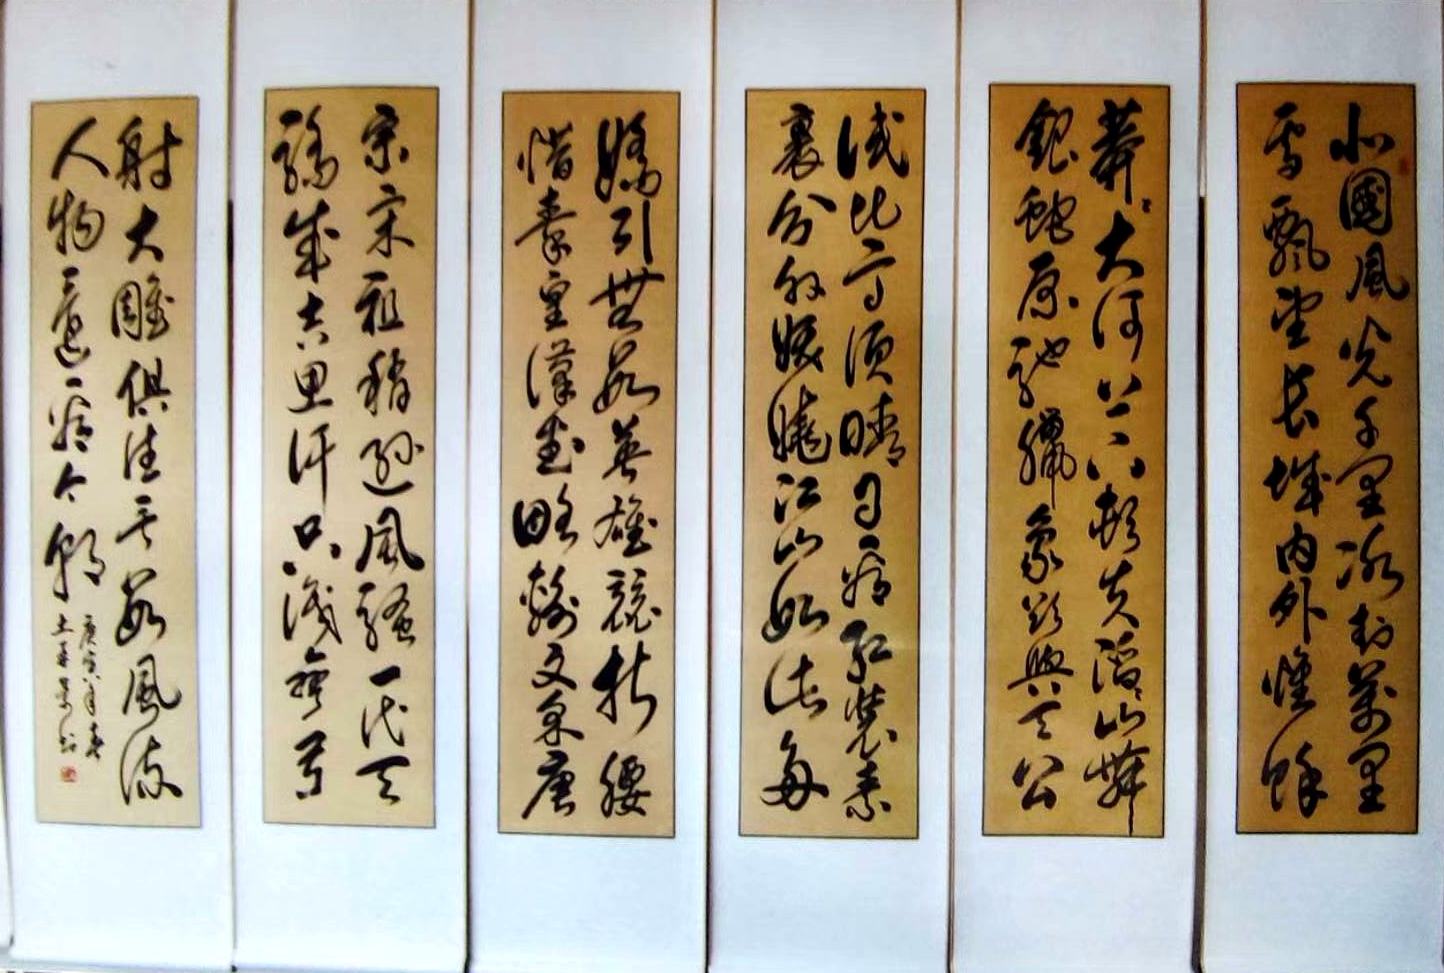 北國風光千里冰封萬里
雪飄望長城內外惟餘
莽莽大河上下頓失滔滔山舞
銀蛇原馳臘象欲與天公
試比高須晴日看紅裝素
裹分外妖嬈江山如此多
嬌引無數英雄競折腰
惜秦皇漢武略輸文采唐
宗宋祖稍遜風騷一代天
驕成吉思汗只識彎弓
射大雕俱往矣數風流
人物還看今朝
庚寅年春